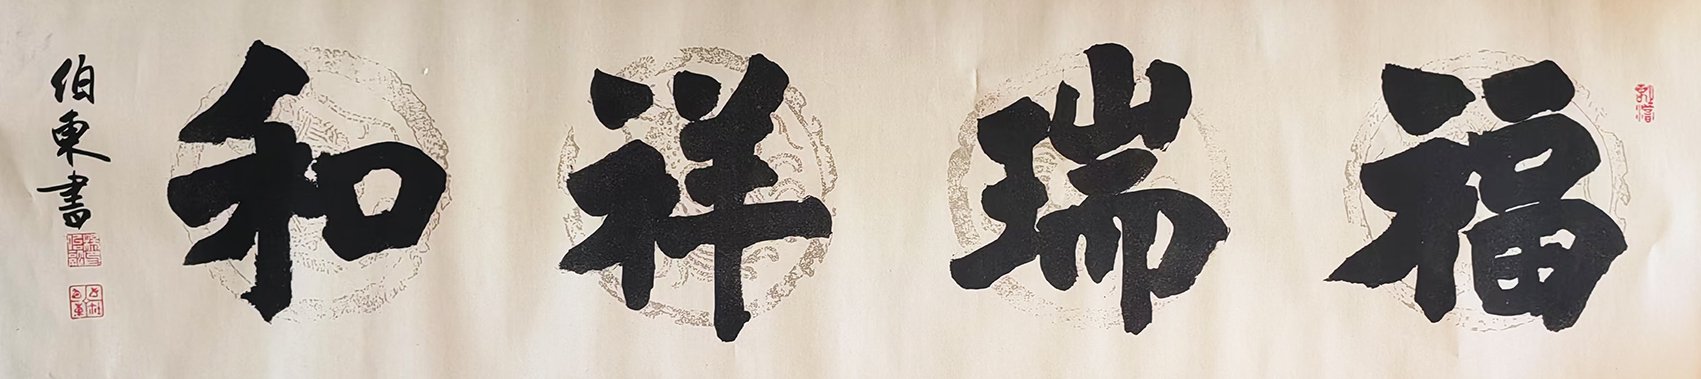 福瑞祥和
伯東書